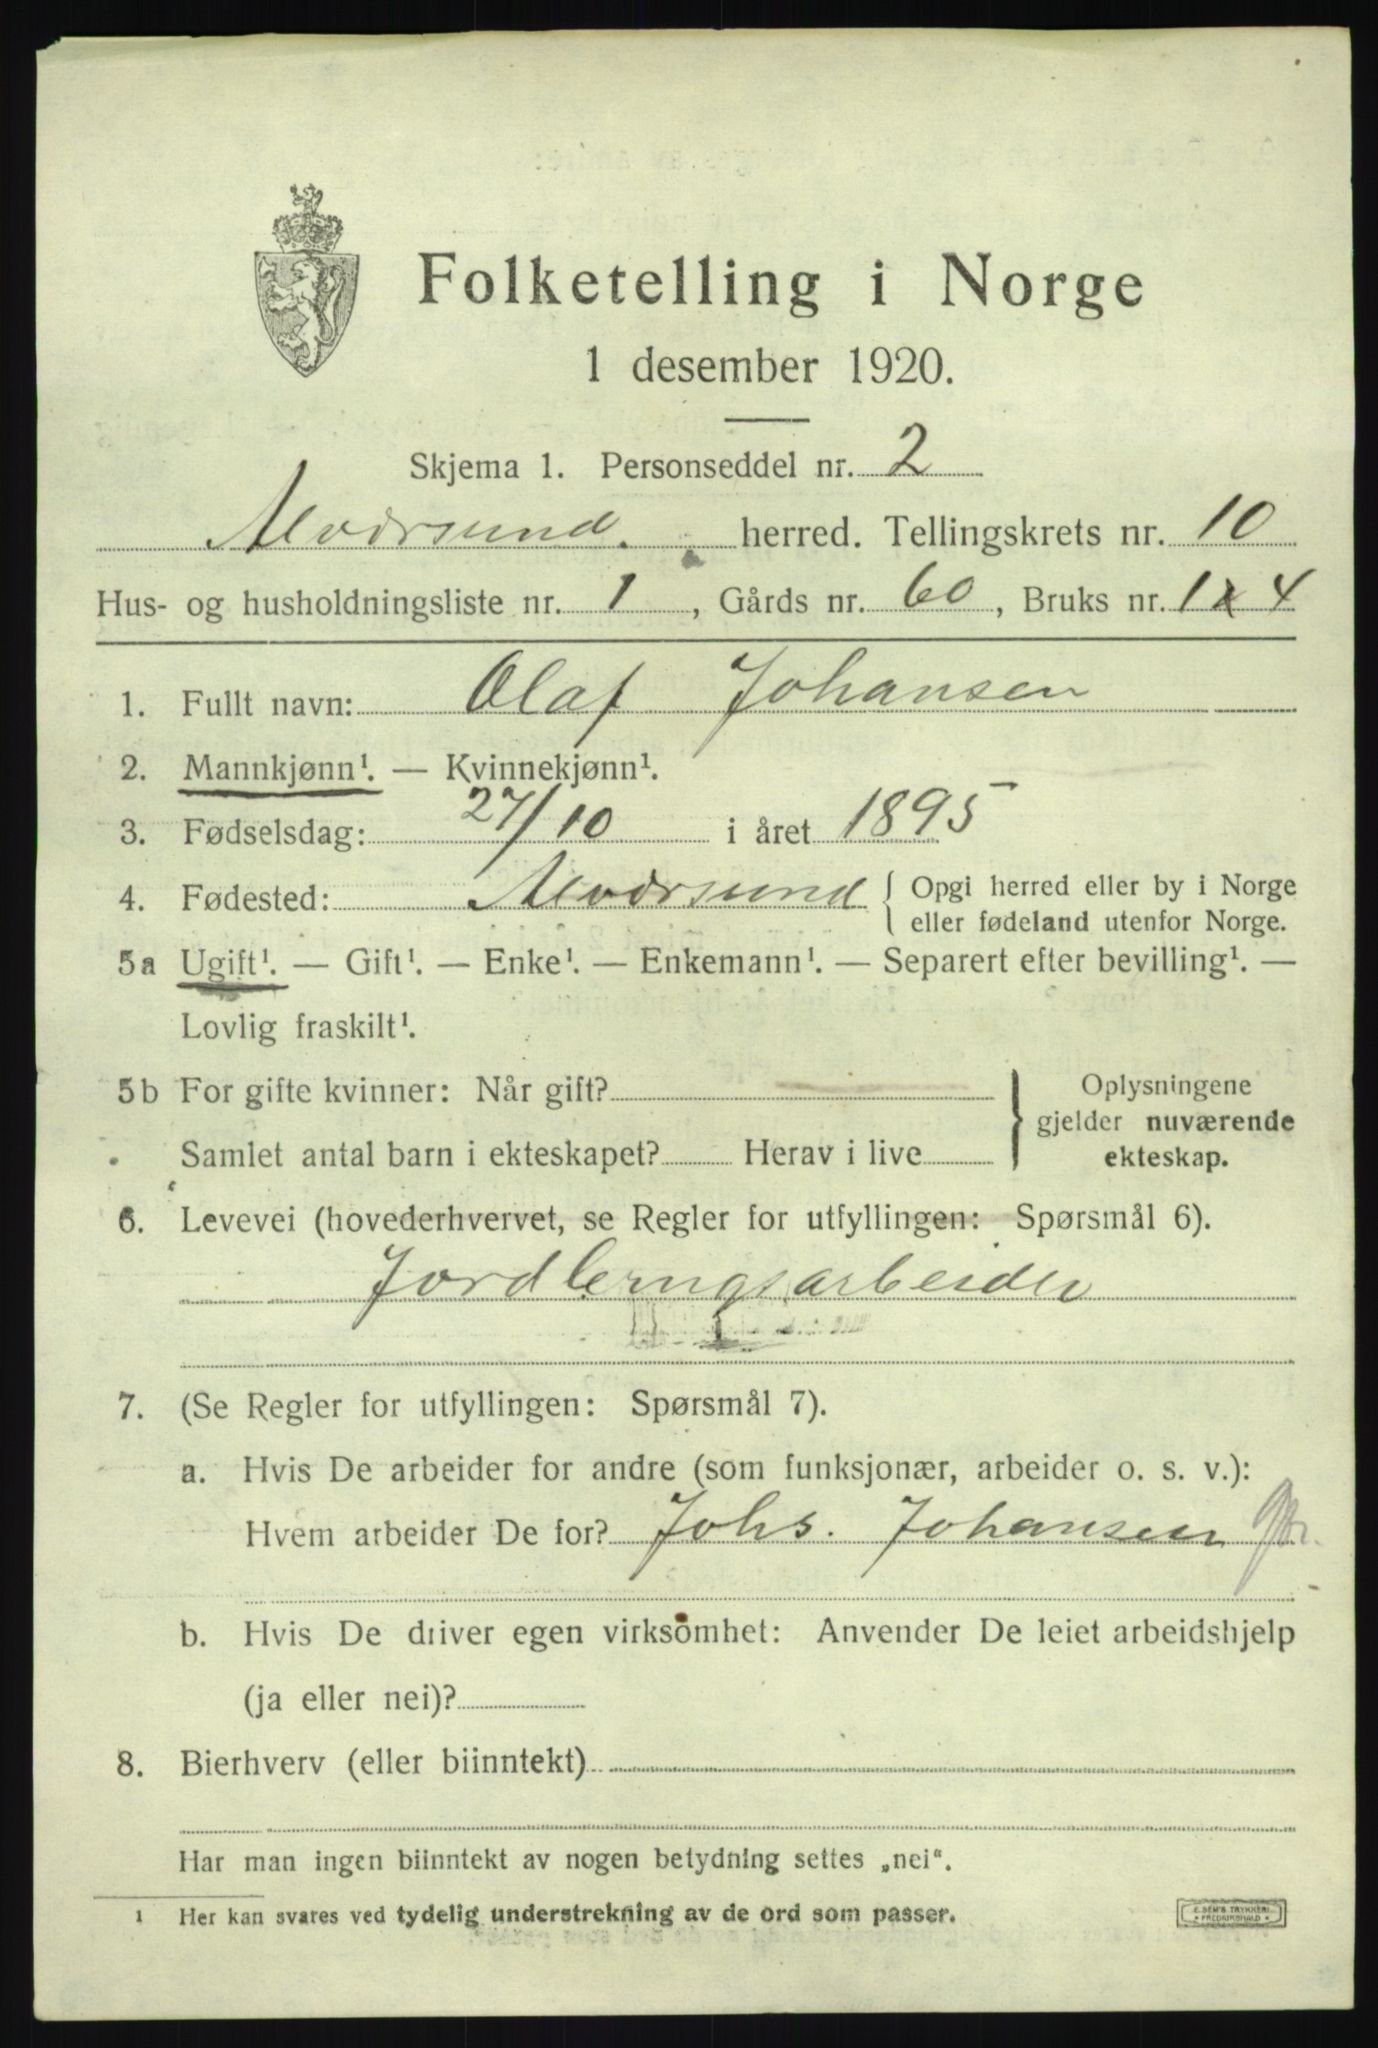 Folketelling i Norge
1 desember 1920.
Skjema 1. Personseddel nr. 2
Alversund. herred. Tellingskrets nr. 10
Hus- og husholdningsliste nr. 1, Gårds nr. 60, Bruks nr. 1 4
1. Fullt navn: Olaf Johansen
2. Mannkjønn¹. — Kvinnekjønn¹.
3. Fødselsdag: 27/10 i året 1895
4. Fødested: Alversund { Opgi herred eller by i Norge
eller fødeland utenfor Norge.
5a Ugift¹. — Gift¹. — Enke¹. — Enkemann¹. — Separert efter bevilling¹. —
Lovlig fraskilt¹.
5b For gifte kvinner: Når gift? } Oplysningene
gjelder nuværende
Samlet antal barn i ekteskapet? Herav i live ekteskap.
6. Levevei (hovederhvervet, se Regler for utfyllingen: Spørsmål 6).
Jordbrugsarbeider
7. (Se Regler for utfyllingen: Spørsmål 7).
a. Hvis De arbeider for andre (som funksjonær, arbeider o. s. v.):
Hvem arbeider De for? Johs. Johansen
b. Hvis De driver egen virksomhet: Anvender De leiet arbeidshjelp
(ja eller nei)?
8. Bierhverv (eller biinntekt)
Har man ingen biinntekt av nogen betydning settes „nei“.
1 Her kan svares ved tydelig understrekning av de ord som passer.
E. SEM'S TRYKKERI
• FREDRIKSHALD •